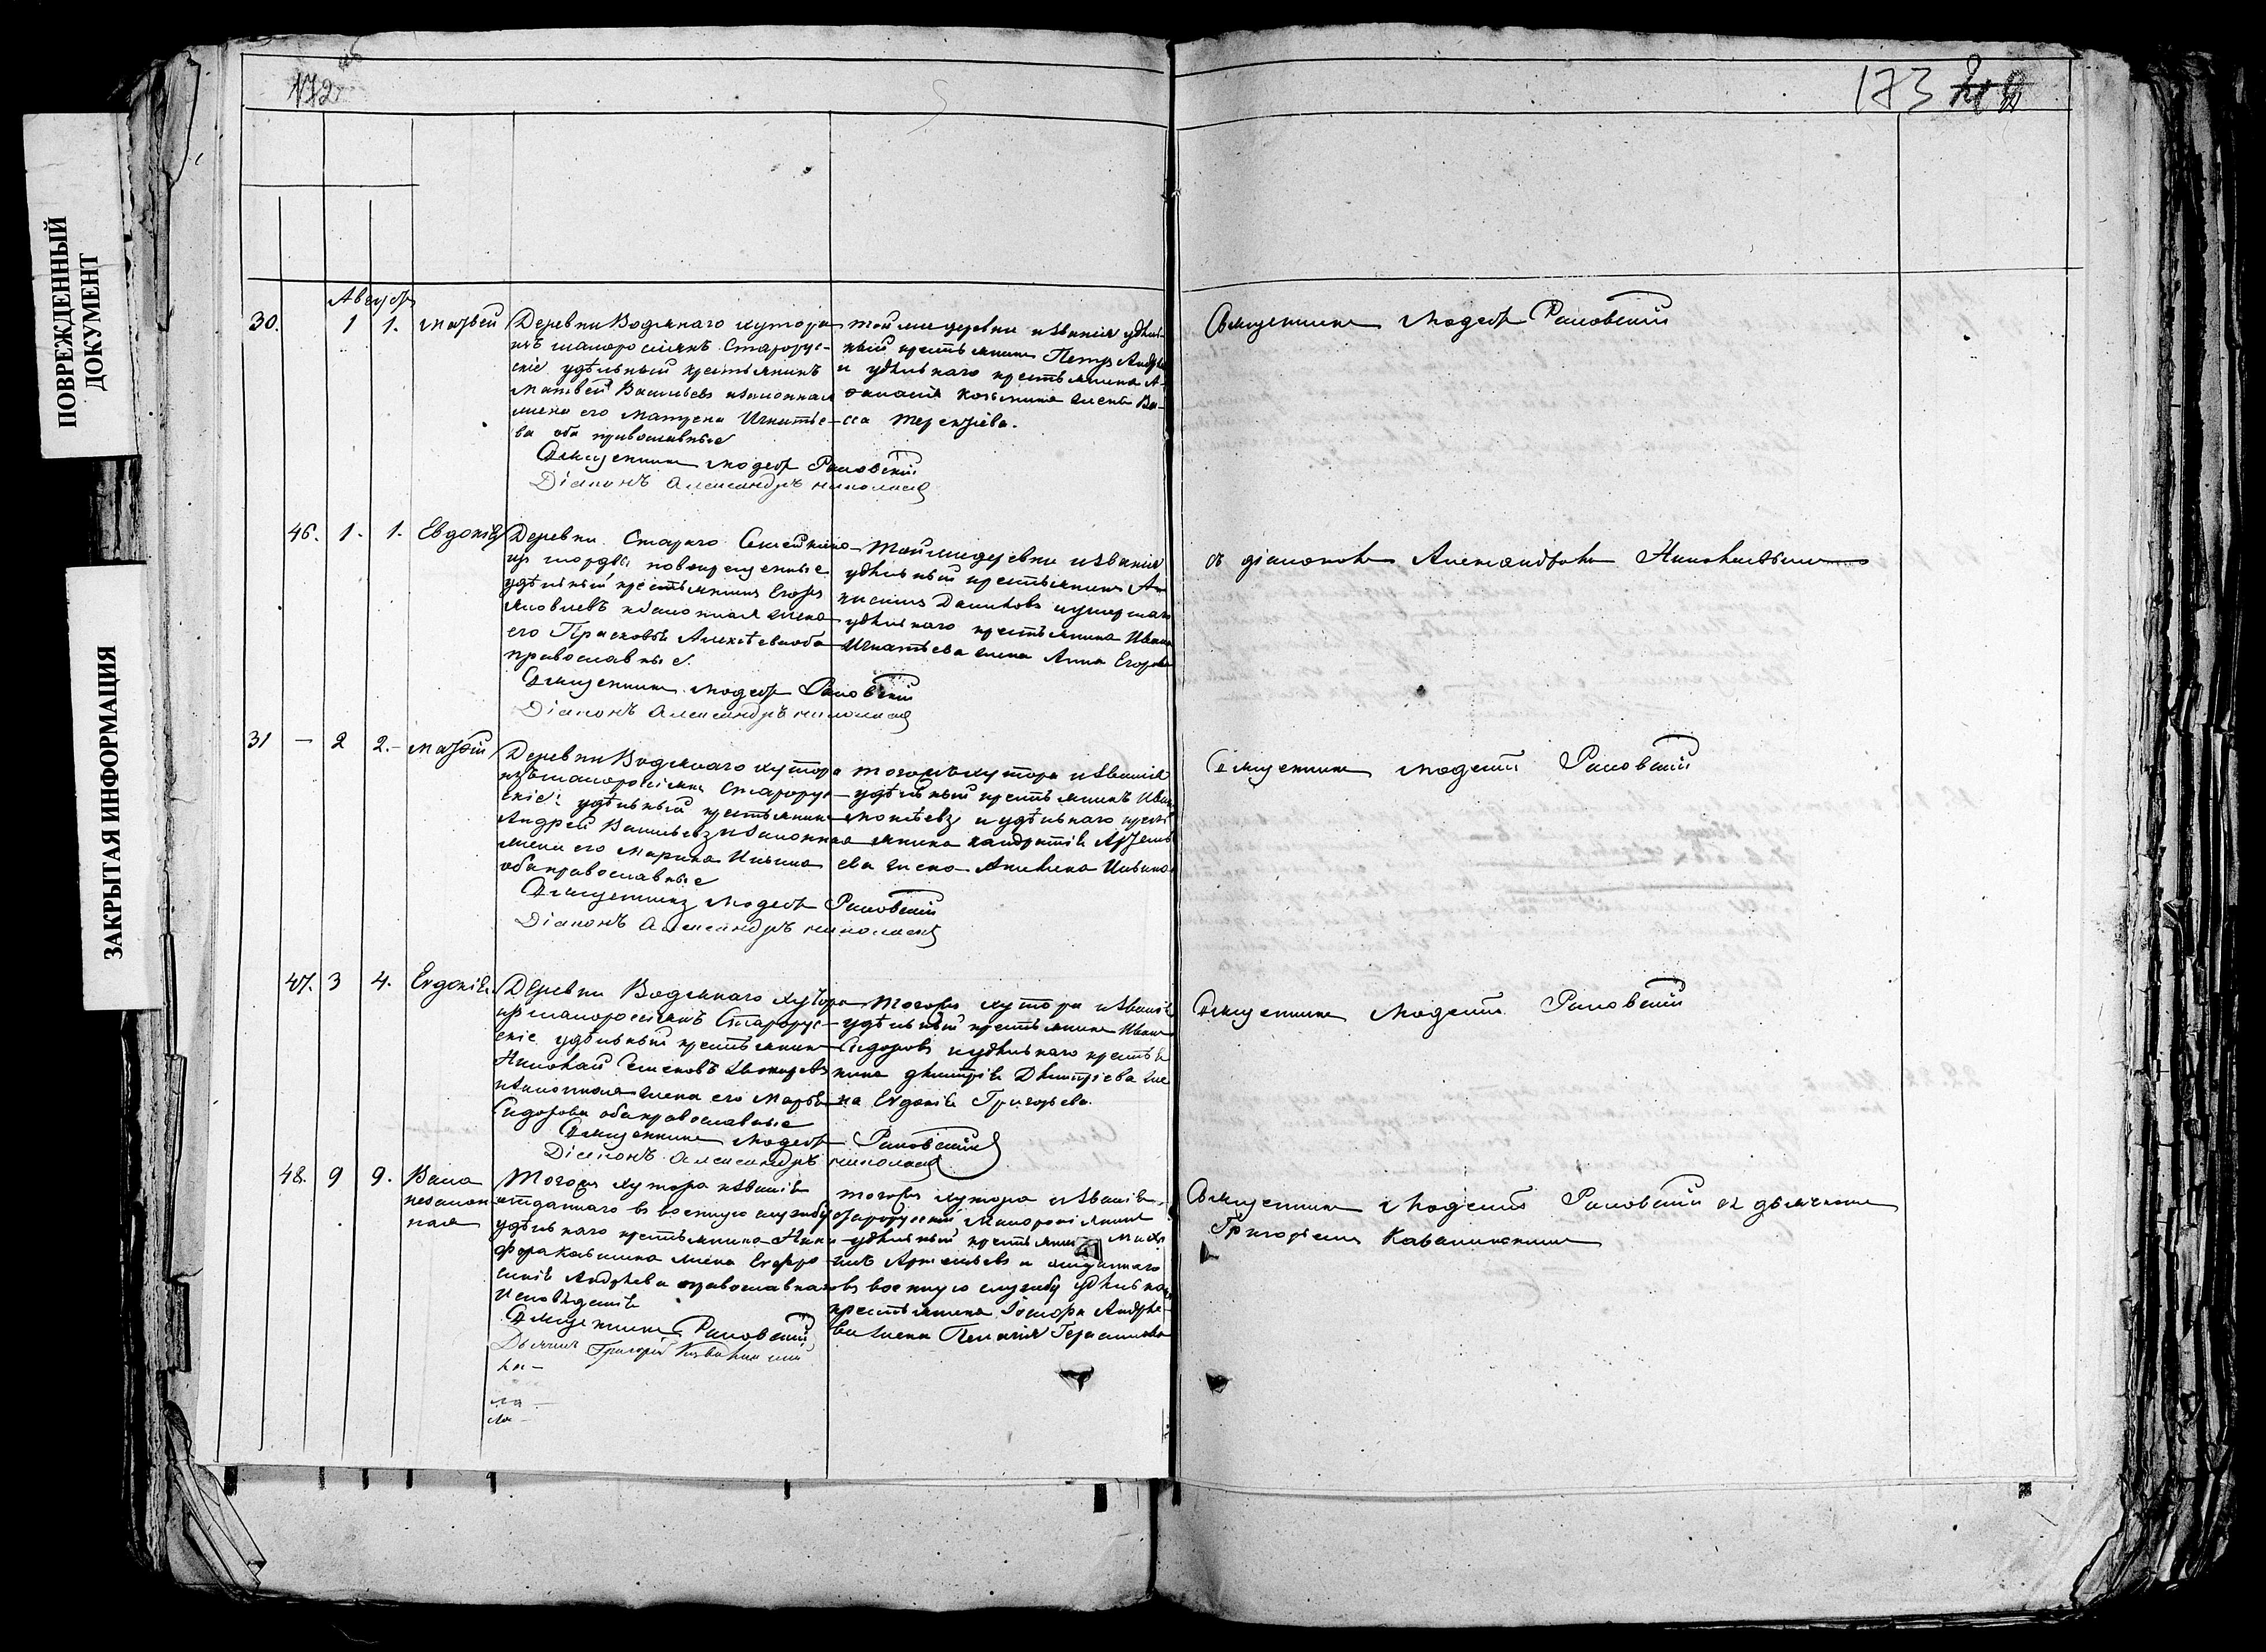 ПОВРЕЖДЕННЫЙ
ДОКУМЕНТ
ЗАКРЫТАЯ ИНФОРМАЦИЯ
172 об
173
Августъ
30. 1 1. Матвей
Деревни Водянаго хутора
изъ малороссіянъ Старорус-
скіе удѣльный крестьянинъ
Матвей Васильевъ изаконная
жена его Матрена Игнатье-
ва оба православные
Священникъ Модестъ Раковскій
Діаконъ Александръ Николаевъ
тойжедеревни изванія удѣль-
ный крестьянинъ Петръ Андрѣе
и удѣльнаго крестьянина А-
жена Ва-
са Терентіева.
Священникъ Модестъ Раковскій
46. 1. 1. Евдокія
Деревни Стараго Семейкина
изъ мордвы новокрещенные
удѣльный крестьянинъ Егоръ
Яковлевъ изаконная жена
его Прасковья Алексѣеваоба
православные.
Священникъ Модестъ Раковскій
Діаконъ Александръ Николаевъ
Тойжедеревни изванія
удѣльный крестьянинъ А-
Даниловъ иумершаго
удѣльнаго крестьянина Ивана
Игнатьева жена Анна Егорова
съ діакономъ Александромъ Николаевымъ
31 — 2 2. Матвій
Деревни Водянаго хутора
изъмалоросіянъ Старорус-
скіе удѣльный крестьянинъ
Андрей Васильевъ изаконная
жена его Марина Ильина
обаправославные
Священникъ Модестъ Раковскій
Діаконъ Александръ Николаевъ
тогожъхутора изванія
удѣльный крестьянинъ Иванъ
иудѣльнаго кресть
янина Кандратія Артемь
ева жена Акилина Ильина
Священникъ Модестъ Раковскій
47. 3 4. Евдокія.
Деревни Водянаго хутора
изъ малоросіянъ Старорус-
скіе удѣльный крестьянинъ
Николай
изаконная жена его Марья
Сидорова обаправославные
Священникъ Модестъ Раковскій
Діаконъ Александръ Николаевъ
Тогожъ хутора изванія
удѣльный крестьянинъ Иванъ
Сидоровъ иудѣльнаго крестья
нина Дмитрія Дмитріева же
на Евдокія Григорьева.
Священникъ Модестъ Раковскій
48. 9 9. Васа
незакон
ная
Тогожъ хутора изванія
отданнаго въ военную службу
удѣльнаго крестьянина Ники
фора жена Евфро
синія Андрѣева православнаго
Исповѣданія
Священникъ Раковскій
Дьячекъ Григорій
тогожъ хутора изванія
старорускій Малоросіянинъ
удѣльный крестьянинъ Миха
илъ Артемьевъ и отданнаго
въ военную службу удѣльнаго
крестьянина Іосифа Андрѣе-
ва жена Пелагія Герасимова
Священникъ Модестъ Раковскій съ дьячкомъ
Григорьемъ